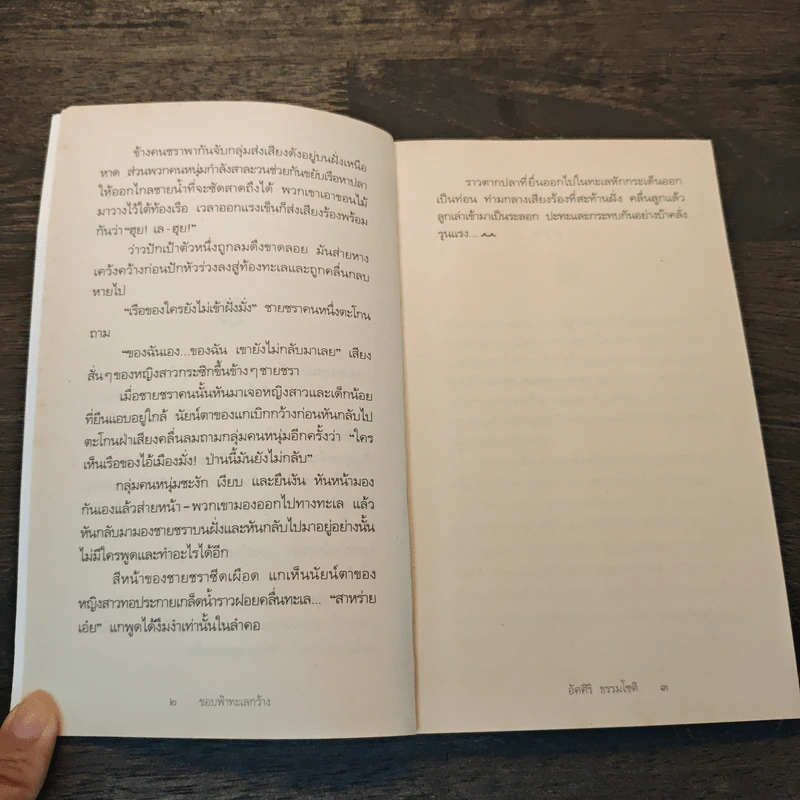 ช้างคนชราพากันจับกลุ่มส่งเสียงดังอยู่บนฝั่งเหนือ
หาด ส่วนพวกคนหนุ่มกำลังสาละวนช่วยกันขยับเรือหาปลา
ให้ออกไกลชายน้ำที่จะซัดสาดถึงได้ พวกเขาเอาขอนไม้
มาวางไว้ใต้ท้องเรือ เวลาออกแรงเข็นก็ส่งเสียงร้องพร้อม
กันว่า “ฮุย! เล - ฮุย!”
ว่าวปักเป้าตัวหนึ่งถูกลมดึงขาดลอย มันส่ายหาง
เคว้งคว้างก่อนปักหัวร่วงลงสู่ท้องทะเลและถูกคลื่นกลบ
หายไป
“เรือของใครยังไม่เข้าฝั่งมั่ง” ชายชราคนหนึ่งตะโกน
ถาม
“ของฉันเอง...ของฉัน เขายังไม่กลับมาเลย” เสียง
สั่นๆของหญิงสาวกระซิกขึ้นข้างๆชายชรา
เมื่อชายชราคนนั้นหันมาเจอหญิงสาวและเด็กน้อย
ที่ยืนแอบอยู่ใกล้ นัยน์ตาของแกเบิกกว้างก่อนหันกลับไป
ตะโกนฝ่าเสียงคลื่นลมถามกลุ่มคนหนุ่มอีกครั้งว่า “ใคร
เห็นเรือของไอ้เมืองมั่ง! ป่านนี้มันยังไม่กลับ”
กลุ่มคนหนุ่มชะงัก เงียบ และยืนงัน หันหน้ามอง
กันเองแล้วส่ายหน้า – พวกเขามองออกไปทางทะเล แล้ว
หันกลับมามองชายชราบนฝั่งและหันกลับไปมาอยู่อย่างนั้น
ไม่มีใครพูดและทำอะไรได้อีก
สีหน้าของชายชราซีดเผือด แกเห็นนัยน์ตาของ
หญิงสาวทอประกายเกล็ดน้ำราวฝอยคลื่นทะเล... “สาหร่าย
เอ๋ย” แกพูดได้งึมงำเท่านั้นในลำคอ
๒ ขอบฟ้าทะเลกว้าง
ราวตากปลาที่ยื่นออกไปในทะเลหักกระเด็นออก
เป็นท่อน ท่ามกลางเสียงร้องที่สะท้านฝั่ง คลื่นลูกแล้ว
ลูกเล่าเข้ามาเป็นระลอก ปะทะและกระทบกันอย่างบ้าคลั่ง
รุนแรง...
อัศศิริ ธรรมโชติ ๓